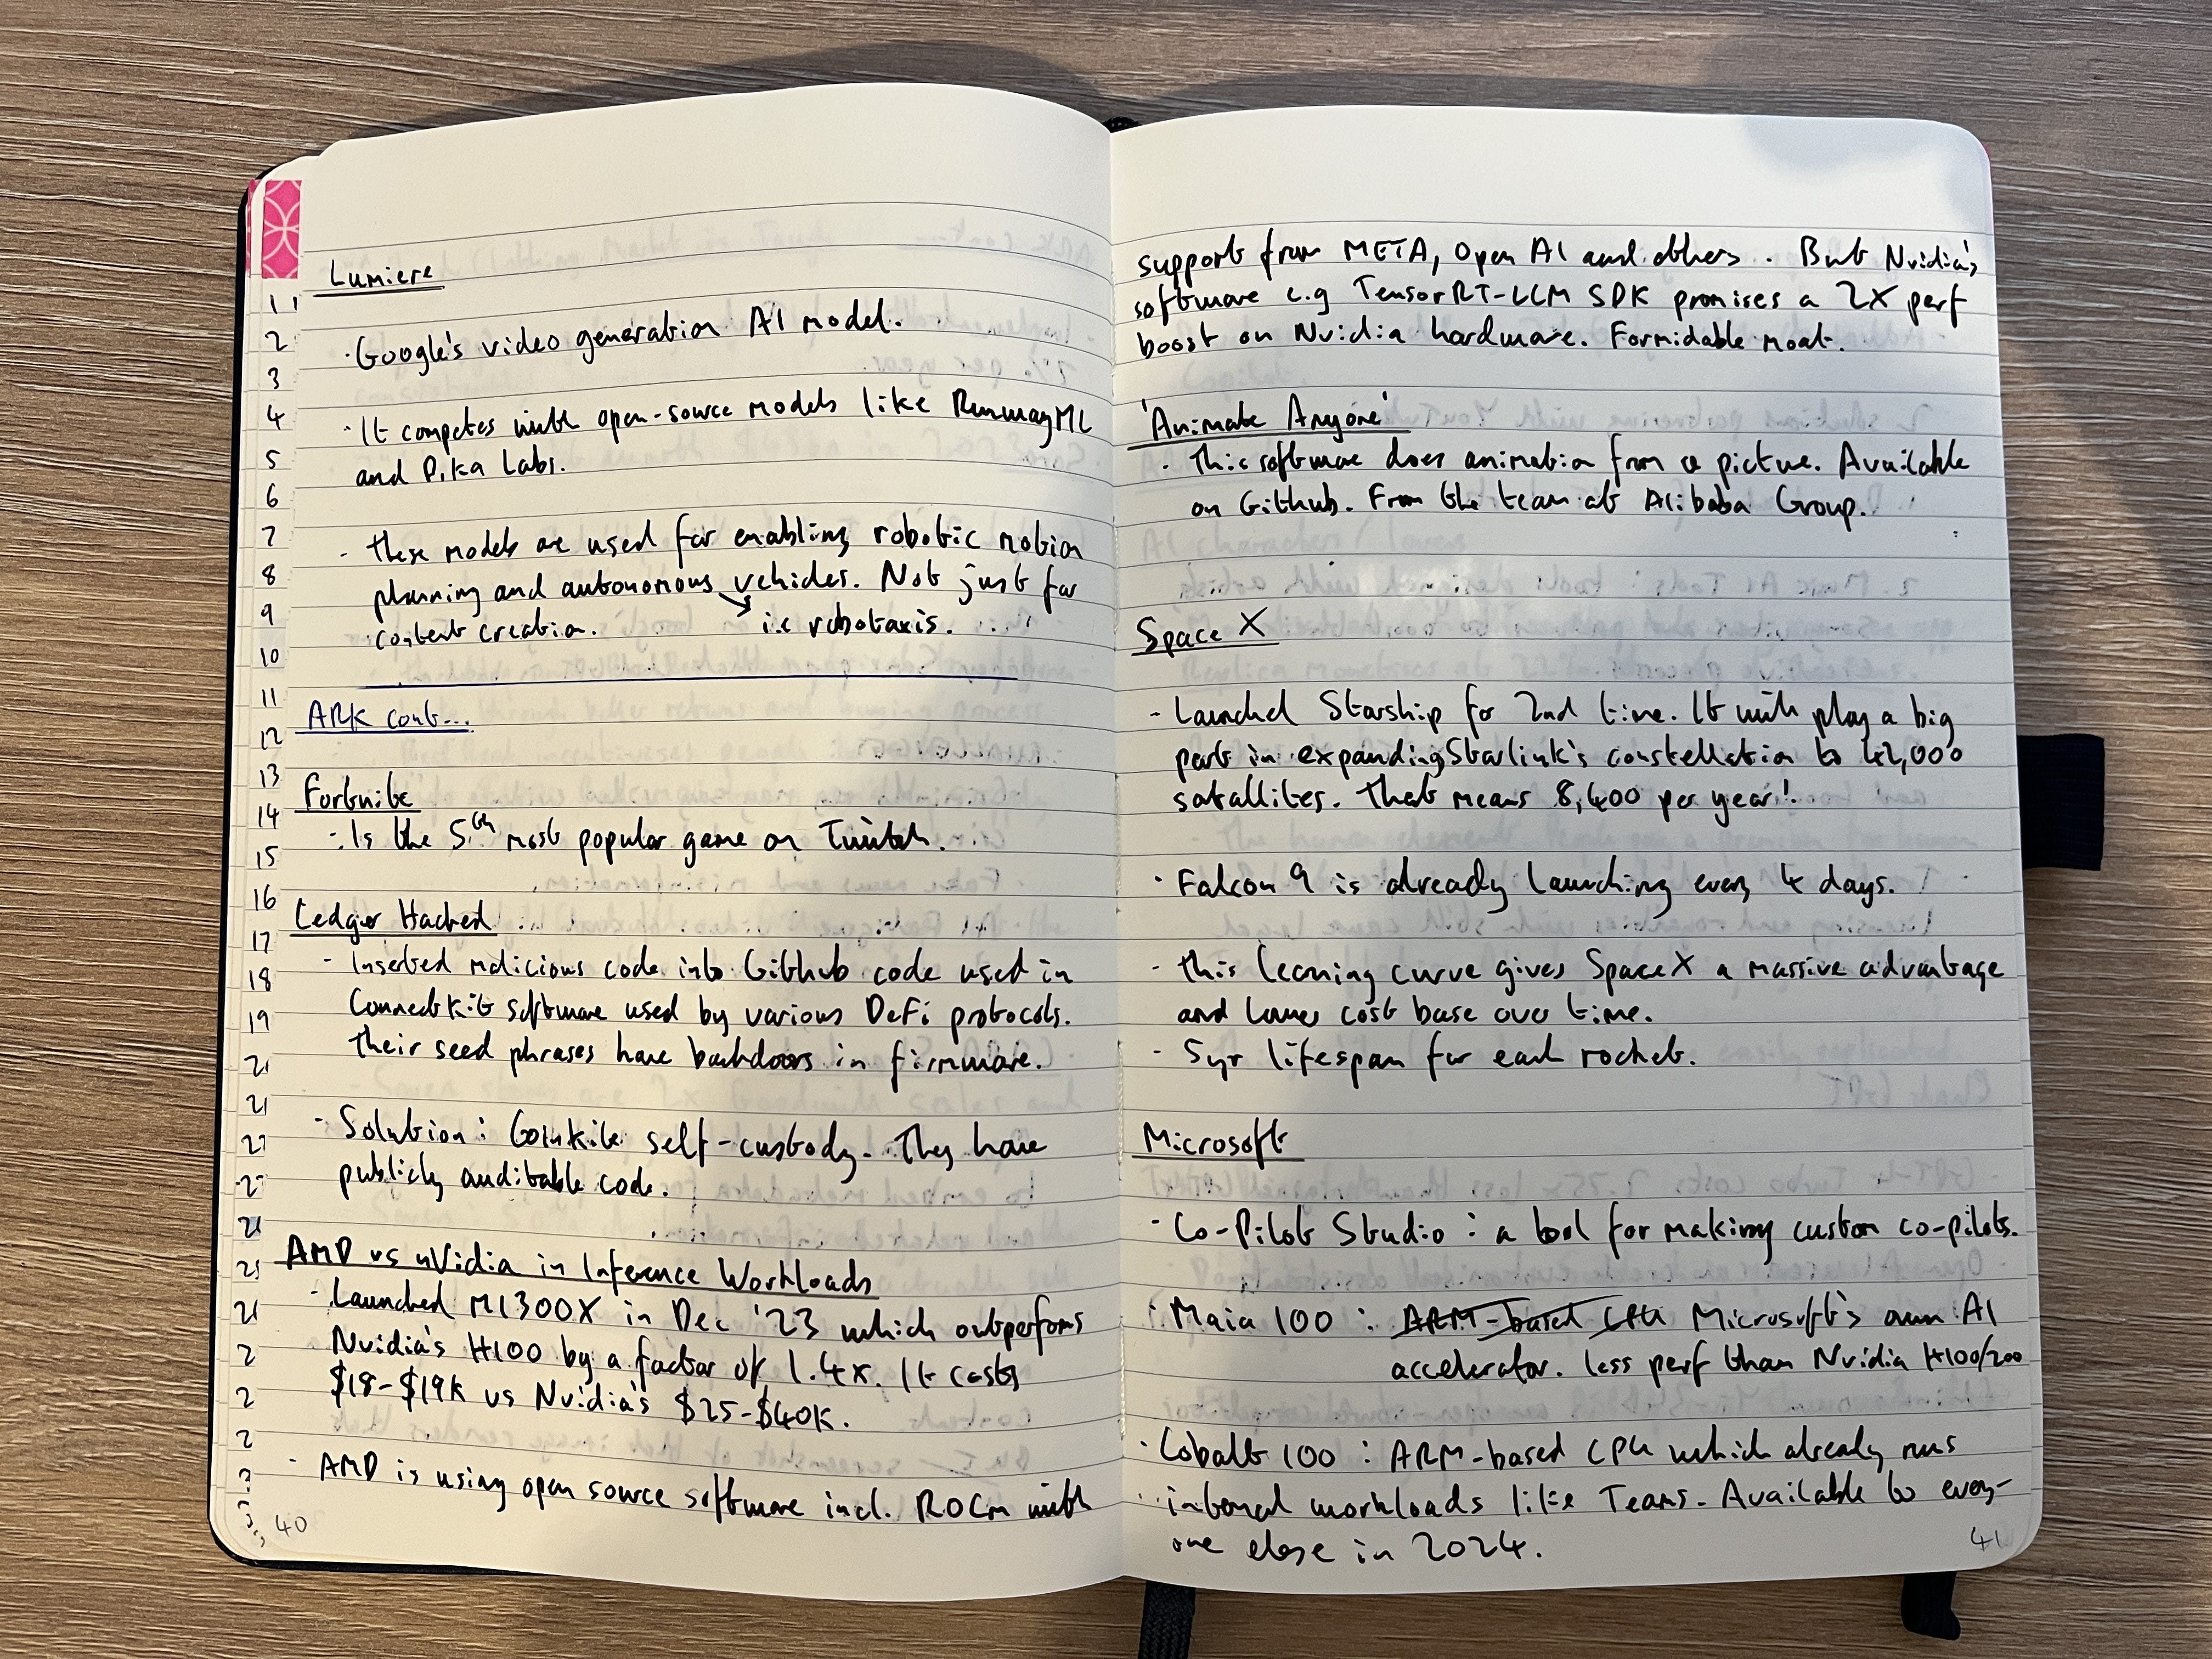 Lumiere
· Google's video generation AI model.
· It competes with open-source models like RunwayML
and Pika Labs.
- These models are used for enabling robotic motion
planning and autonomous vehicles. Not just for
content creation. → i.e robotaxis.
ARK cont...
Fortnite
- Is the 5th most popular game on Twitch.
Ledger Hacked
- Inserted malicious code into Github code used in
ConnectKit software used by various DeFi protocols.
Their seed phrases have backdoors in firmware.
- Solution: Coinkite self-custody. They have
publicly auditable code.
AMD vs nVidia in Inference Workloads
- Launched MI300X in Dec '23 which outperforms
Nvidia's H100 by a factor of 1.4x. It costs
$18-$19K vs Nvidia's $25-$40K.
- AMD is using open source software incl. ROCm with
40
support from META, Open AI and others. But Nvidia's
software e.g TensorRT-LLM SDK promises a 2X perf
boost on Nvidia hardware. Formidable moat.
'Animate Anyone'
· This software does animation from a picture. Available
on Github. From the team at Alibaba Group.
Space X
- Launched Starship for 2nd time. It with play a big
part in expanding Starlink's constellation to 42,000
satallites. That means 8,400 per year!
· Falcon 9 is already launching every 4 days.
- This learning curve gives SpaceX a massive advantage
and lower cost base over time.
- 5yr lifespan for each rocket.
Microsoft
- Co-Pilot Studio: a tool for making custom co-pilots.
· Maia 100: ARM-based CPU Microsoft's own AI
accelerator. Less perf than Nvidia H100/200
· Cobalt 100: ARM-based CPU which already runs
internal workloads like Teams. Available to every-
one else in 2024.
41
1
2
3
4
5
6
7
8
9
10
11
12
13
14
15
16
17
18
19